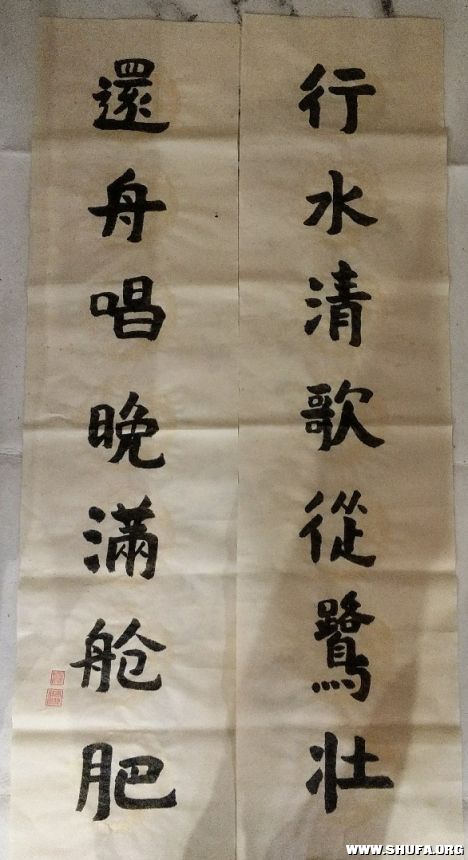 行水清歌從鷺壯
還舟唱晚滿舱肥
WWW.SHUFA.ORG